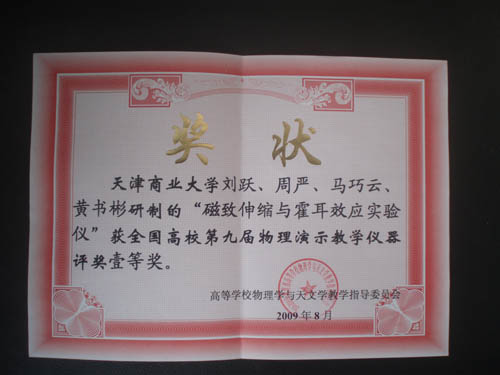 奖状
天津商业大学刘跃、周严、马巧云、
黄书彬研制的“磁致伸缩与霍耳效应实验
仪”获全国高校第九届物理演示教学仪器
评奖壹等奖。
高等学校物理学与天文学教学指导委员会
2009年8月